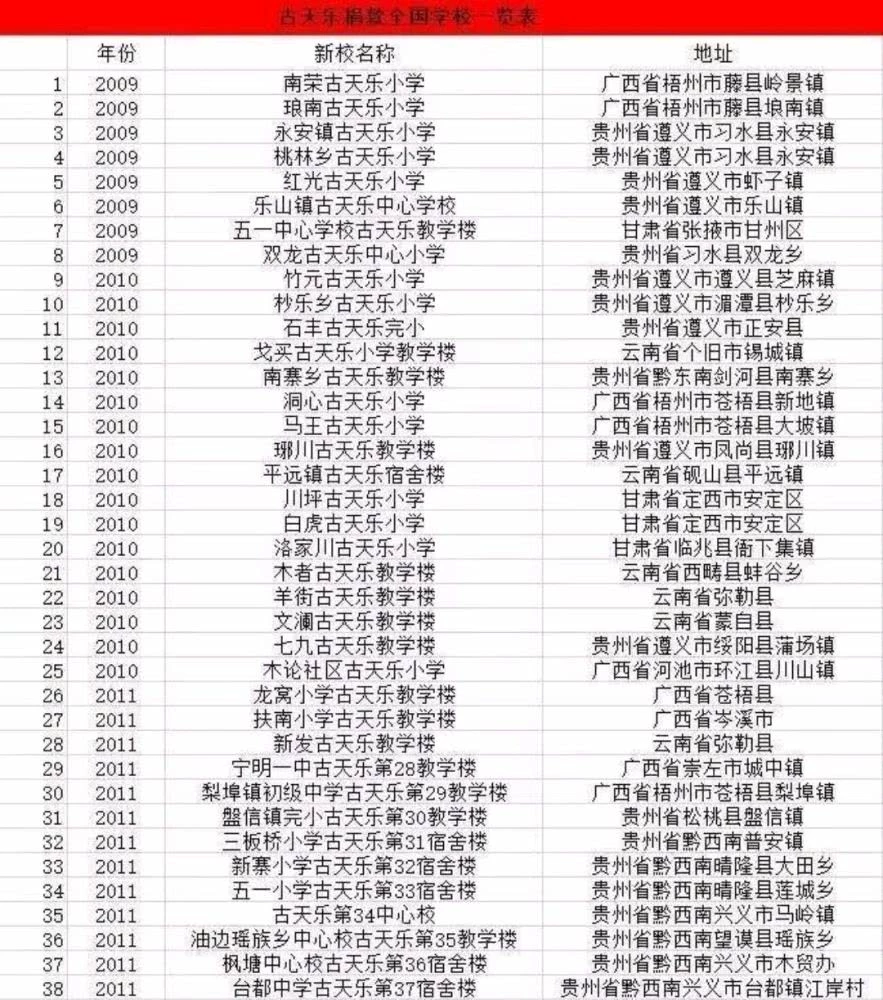 古天乐捐款全国学校一览表
年份 新校名称 地址
1 2009 南荣古天乐小学 广西省梧州市藤县岭景镇
2 2009 琅南古天乐小学 广西省梧州市藤县埌南镇
3 2009 永安镇古天乐小学 贵州省遵义市习水县永安镇
4 2009 桃林乡古天乐小学 贵州省遵义市习水县永安镇
5 2009 红光古天乐小学 贵州省遵义市虾子镇
6 2009 乐山镇古天乐中心学校 贵州省遵义市乐山镇
7 2009 五一中心学校古天乐教学楼 甘肃省张掖市甘州区
8 2009 双龙古天乐中心小学 贵州省习水县双龙乡
9 2010 竹元古天乐小学 贵州省遵义市遵义县芝麻镇
10 2010 杪乐乡古天乐小学 贵州省遵义市湄潭县杪乐乡
11 2010 石丰古天乐完小 贵州省遵义市正安县
12 2010 戈买古天乐小学教学楼 云南省个旧市锡城镇
13 2010 南寨乡古天乐教学楼 贵州省黔东南剑河县南寨乡
14 2010 洞心古天乐小学 广西省梧州市苍梧县新地镇
15 2010 马王古天乐小学 广西省梧州市苍梧县大坡镇
16 2010 琊川古天乐教学楼 贵州省遵义市凤尚县琊川镇
17 2010 平远镇古天乐宿舍楼 云南省砚山县平远镇
18 2010 川坪古天乐小学 甘肃省定西市安定区
19 2010 白虎古天乐小学 甘肃省定西市安定区
20 2010 洛家川古天乐小学 甘肃省临兆县衙下集镇
21 2010 木者古天乐教学楼 云南省西畴县蚌谷乡
22 2010 羊街古天乐教学楼 云南省弥勒县
23 2010 文澜古天乐教学楼 云南省蒙自县
24 2010 七九古天乐教学楼 贵州省遵义市绥阳县蒲场镇
25 2010 木论社区古天乐小学 广西省河池市环江县川山镇
26 2011 龙窝小学古天乐教学楼 广西省苍梧县
27 2011 扶南小学古天乐教学楼 广西省岑溪市
28 2011 新发古天乐教学楼 云南省弥勒县
29 2011 宁明一中古天乐第28教学楼 广西省崇左市城中镇
30 2011 梨埠镇初级中学古天乐第29教学楼 广西省梧州市苍梧县梨埠镇
31 2011 盤信镇完小古天乐第30教学楼 贵州省松桃县盤信镇
32 2011 三板桥小学古天乐第31宿舍楼 贵州省黔西南普安镇
33 2011 新寨小学古天乐第32宿舍楼 贵州省黔西南晴隆县大田乡
34 2011 五一小学古天乐第33宿舍楼 贵州省黔西南晴隆县莲城乡
35 2011 古天乐第34中心校 贵州省黔西南兴义市马岭镇
36 2011 油边瑶族乡中心校古天乐第35教学楼 贵州省黔西南望谟县瑶族乡
37 2011 枫塘中心校古天乐第36宿舍楼 贵州省黔西南兴义市木贸办
38 2011 台都中学古天乐第37宿舍楼 贵州省黔西南兴义市台都镇江岸村